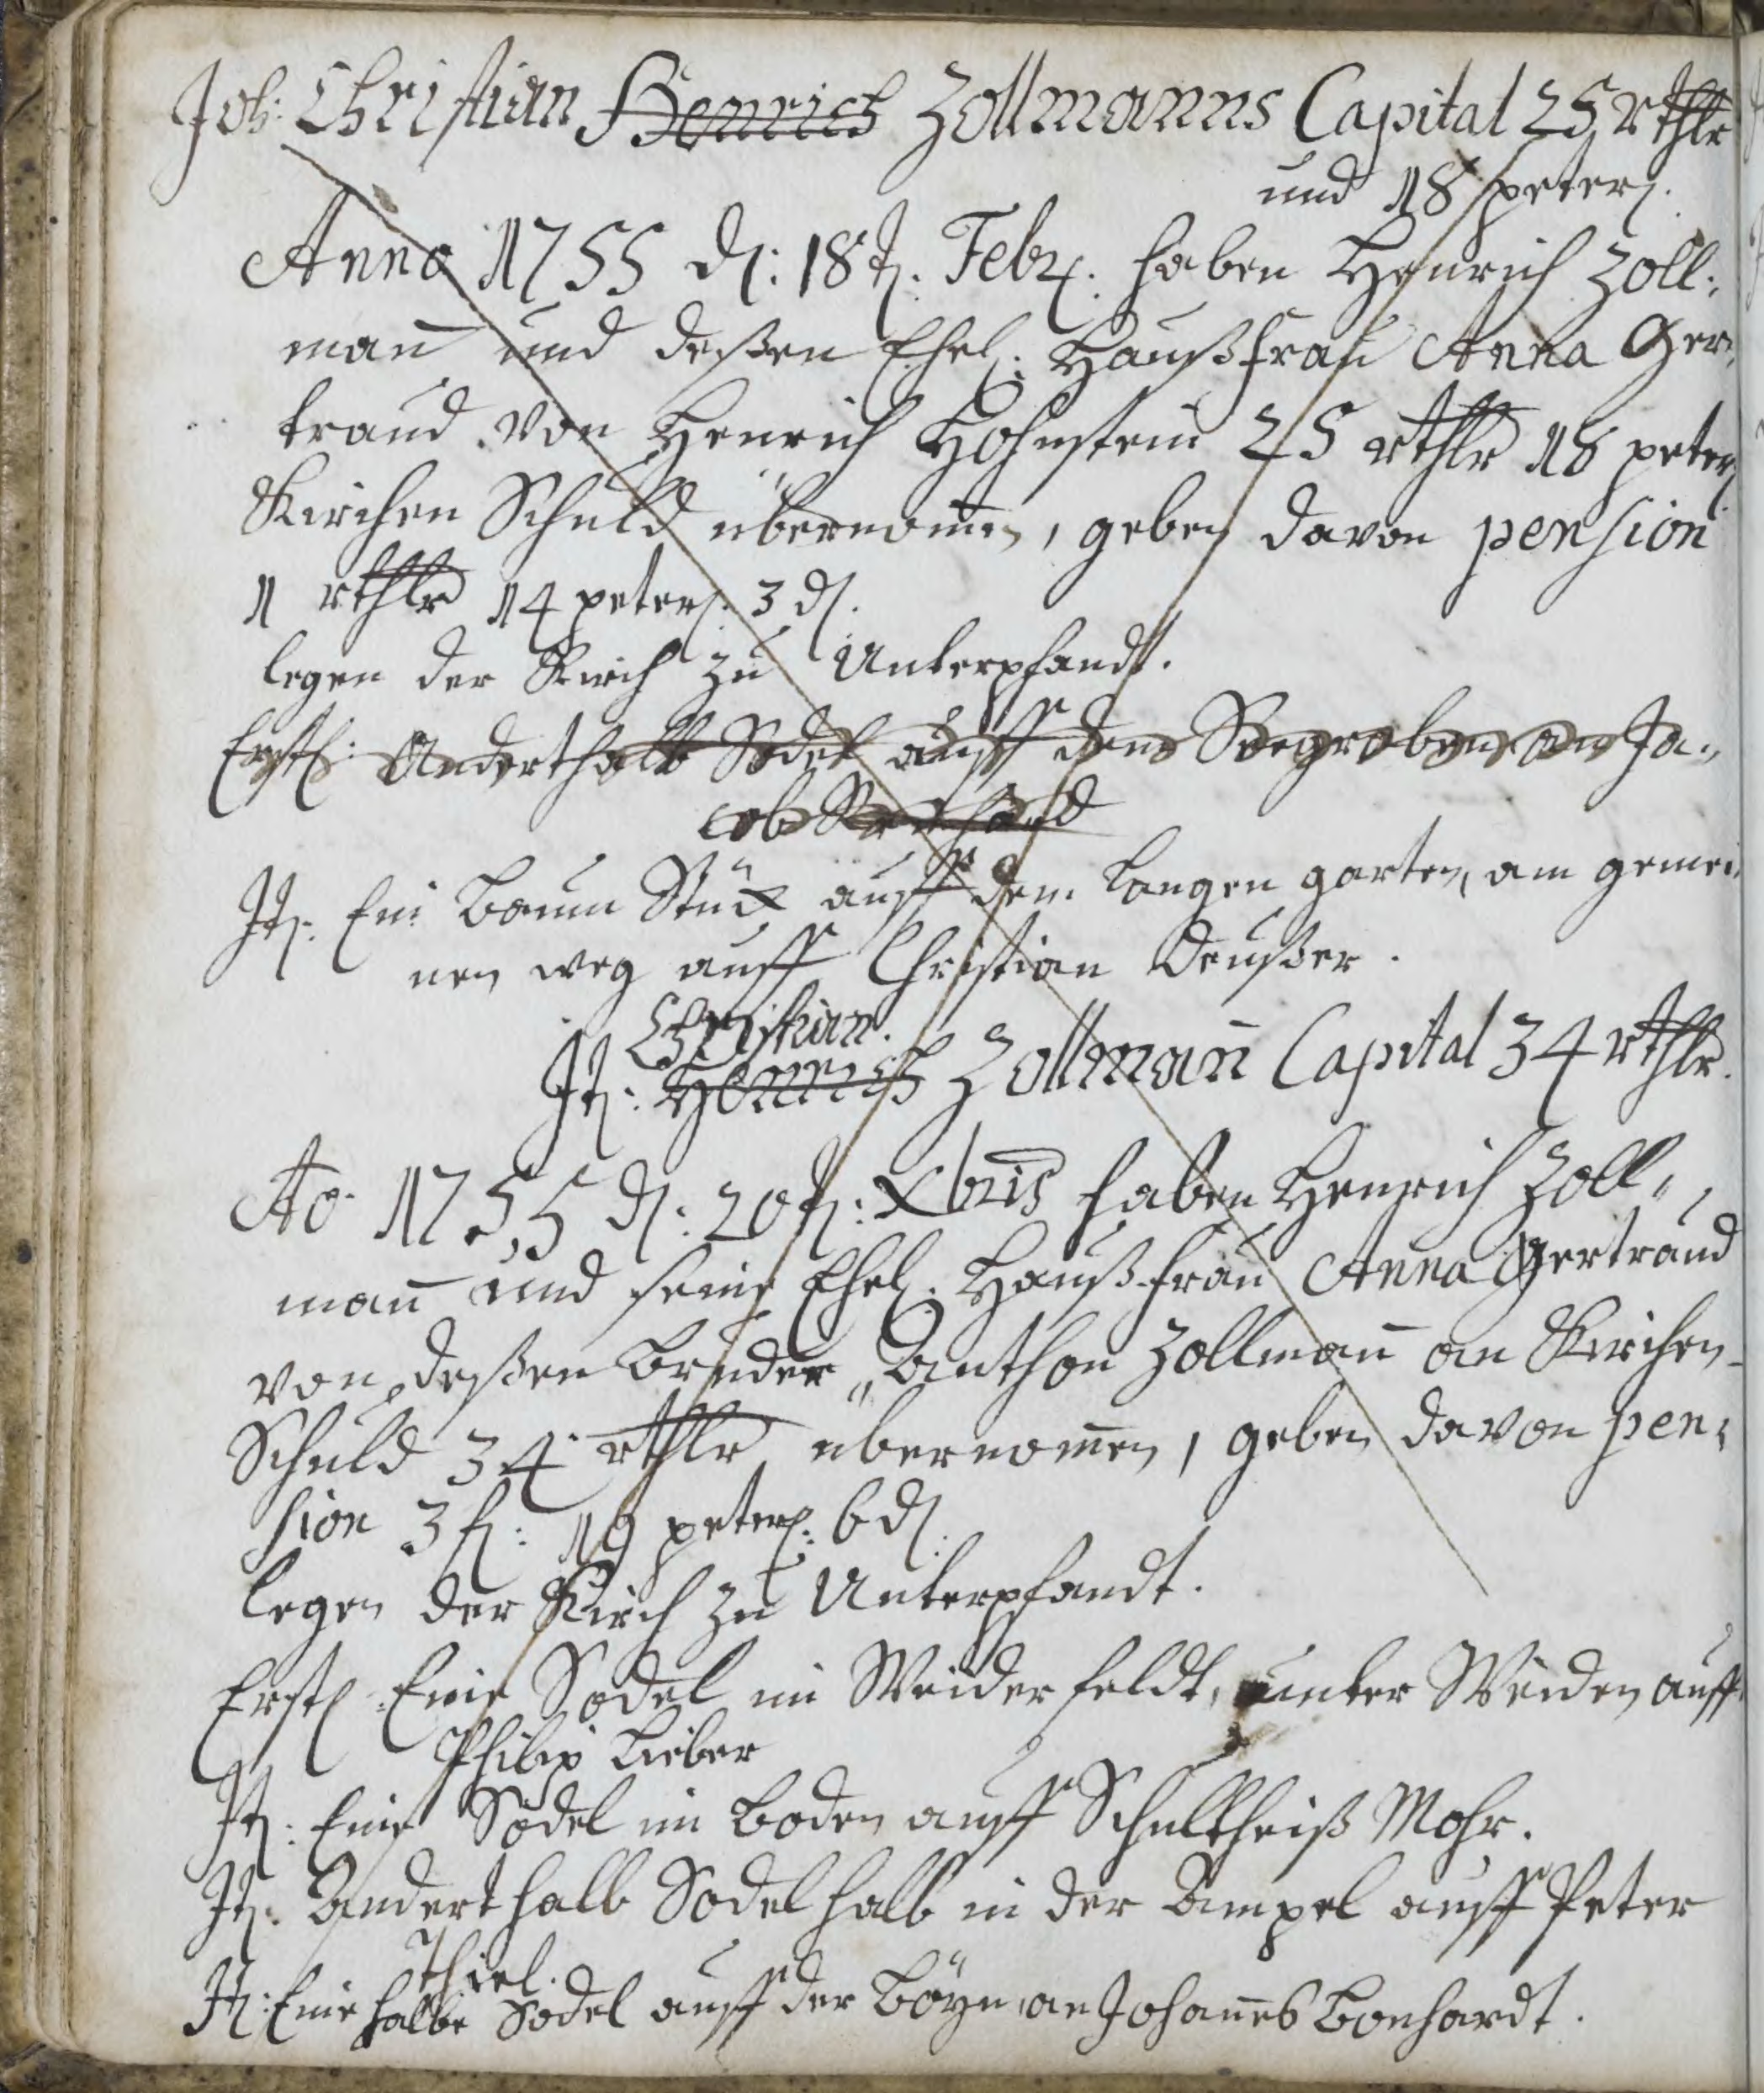 Joh: Christian Henrich Zollmanns Capital 25 rthlr
und 18 peterm.
Anno 1755 d. 18t. Febr. haben Henrich Zoll:
mañ und deßen Ehel. Haußfrau Anna Ger:
traud von Henrich Hohnstein 25 rthlr 18 peterm
Kirchen Schuld übernom̄en, geben davon pension
1 rthlr 14 peterm. 3 d.
legen der Kirch zu Unterpfandt.
Erstl. Anderthalb Sodel auff dem an Ja:
cob
It. Ein Baum Stück auff dem Langen garten, am gemei:
nen weg auff Christian Deußer.
Christian.
It: Henrich Zollmañ Capital 34 rthlr.
Ao. 1755 d. 20t. Xbris haben Henrich Zoll:
mañ und seine Ehel. Hauß-frau Anna Gertraud
von deßen Bruder Anthon Zollmañ an Kirchen-
Schuld 34 rthlr übernom̄en, geben davon pen:
sion 3 fl. 19 peterm. 6 d.
legen der Kirch zu Unterpfandt.
Erstl. Eine Sodel im Weider feldt, unter Weiden auff
Philip Lieber
It: Eine Sodel im Boden auff Schultheiß Mohr.
It: Anderthalb Sodel halb in der Ampel auff Peter
Thiel.
It: Eine halbe Sodel auff der Böyn an Johañes Bonhardt.